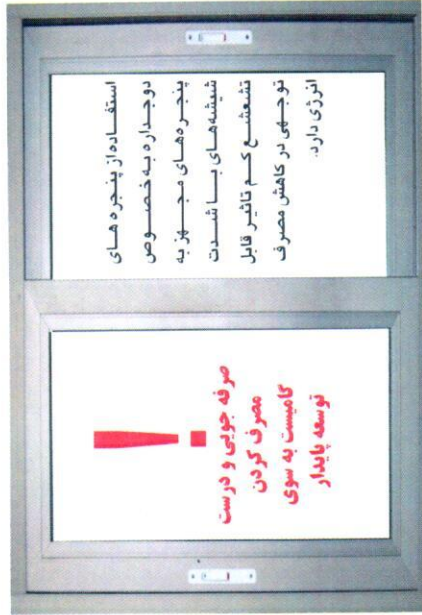 استفاده از پنجره های
دوجداره به خصوص
پنجره های مجهز به
شیشه های با شدت
تشعشع کم تاثیر قابل
توجهی در کاهش مصرف
انرژی دارد.
!
صرفه جویی و درست
مصرف کردن
گامیست به سوی
توسعه پایدار